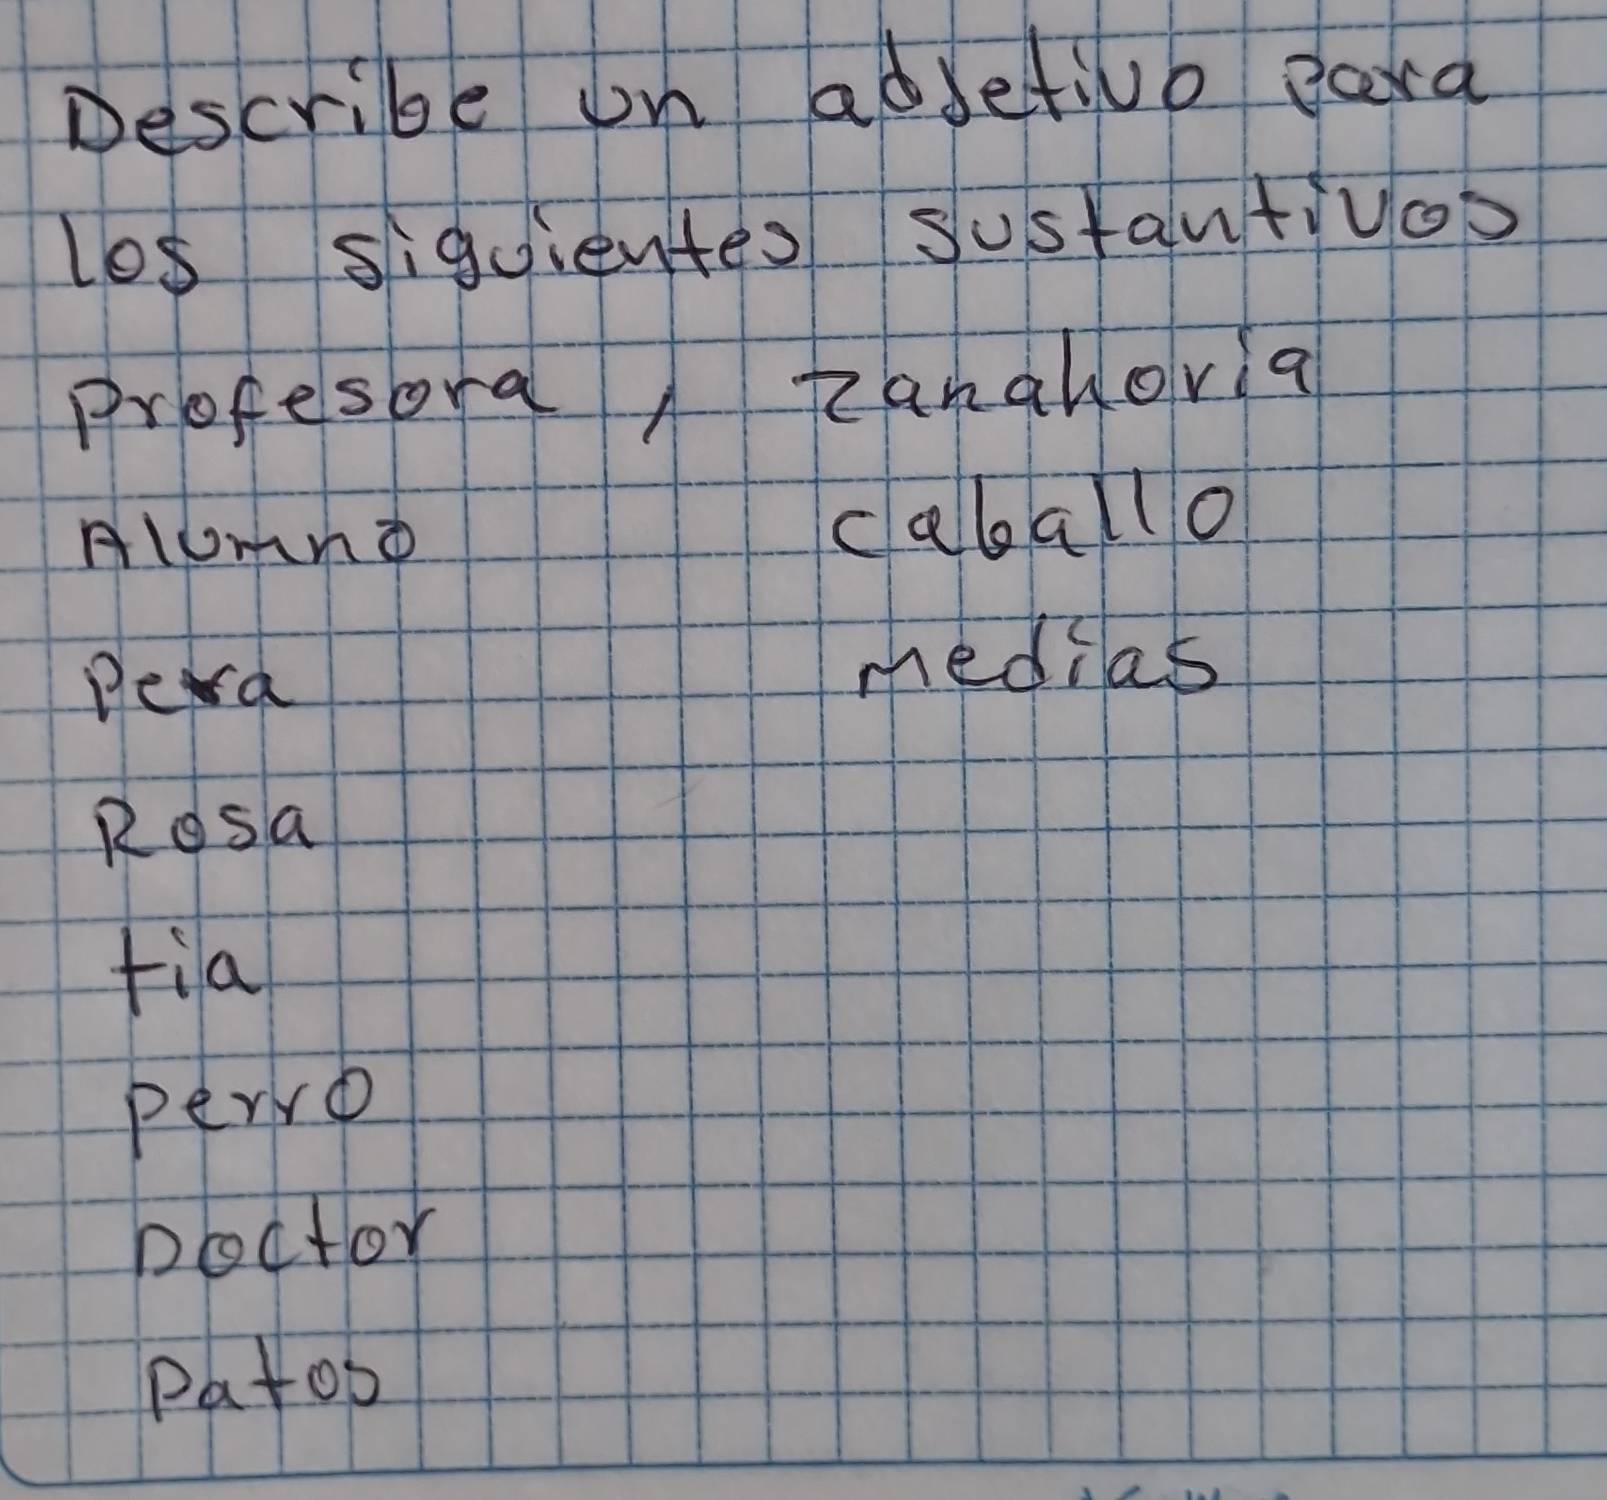 Describe un adjetivo para
los siguientes sustantivos
Profesora , zanahoria
Alumno caballo
Pera medias
Rosa
tia
perro
Doctor
Patos